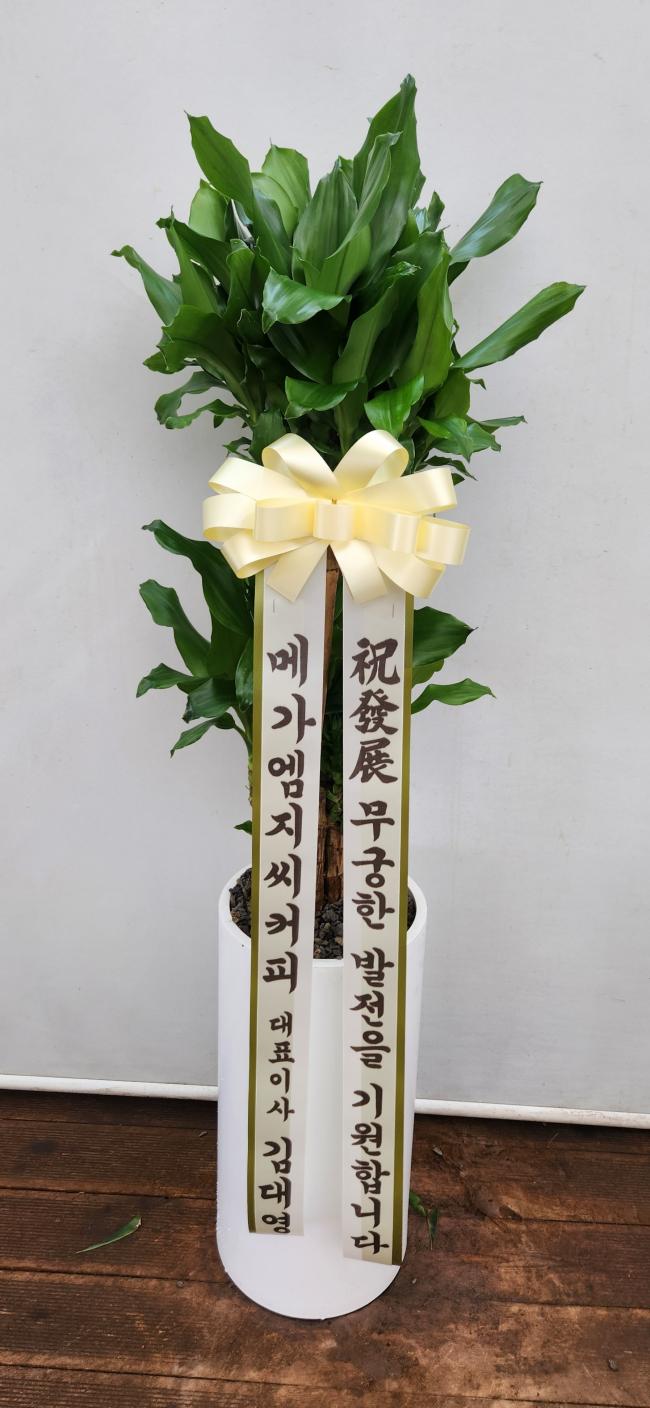 祝發展 무궁한 발전을 기원합니다
메가엠지씨커피 대표이사 김대영